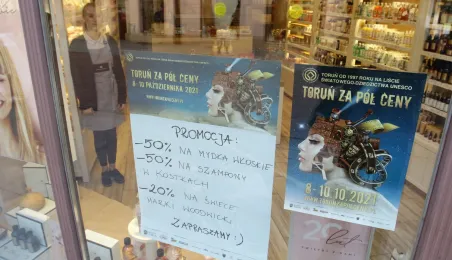 TORUŃ ZA PÓŁ CENY
8-10 PAŹDZIERNIKA 2021
PROMOCJA:
-50% NA MYDŁA WŁOSKIE
-50% NA SZAMPONY
W KOSTKACH
-20% NA ŚWIECE
MARKI WOODWICK
ZAPRASZAMY :)
TORUŃ OD 1997 ROKU NA LIŚCIE
ŚWIATOWEGO DZIEDZICTWA UNESCO
TORUŃ ZA PÓŁ CENY
8-10.10.2021
20 lat